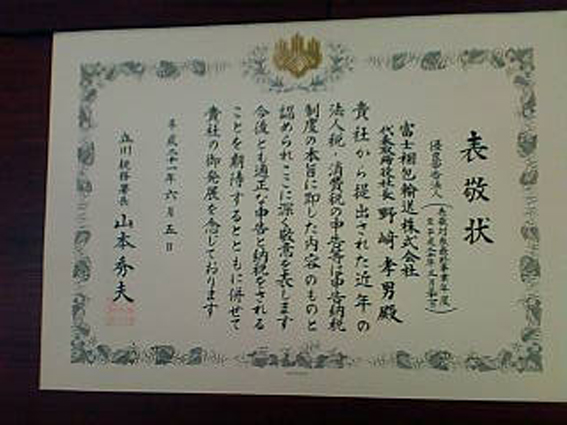 表敬状
優良申告法人
富士梱包輸送株式会社
代表取締役社長 野﨑孝男殿
貴社から提出された近年の
法人税・消費税の申告等は申告納税
制度の本旨に即した内容のものと
認められここに深く敬意を表します
今後とも適正な申告と納税をされる
ことを期待するとともに併せて
貴社の御発展を念じております
平成二十一年六月五日
立川税務署長 山本秀夫